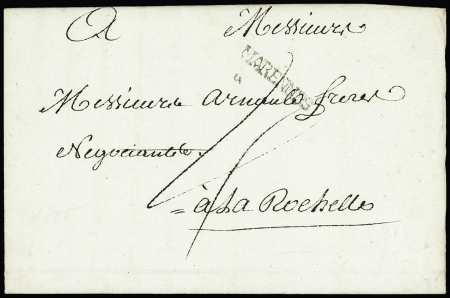 A Messieurs
MARENNES
Messieurs Arnauld freres
Negociants.
= à La Rochelle